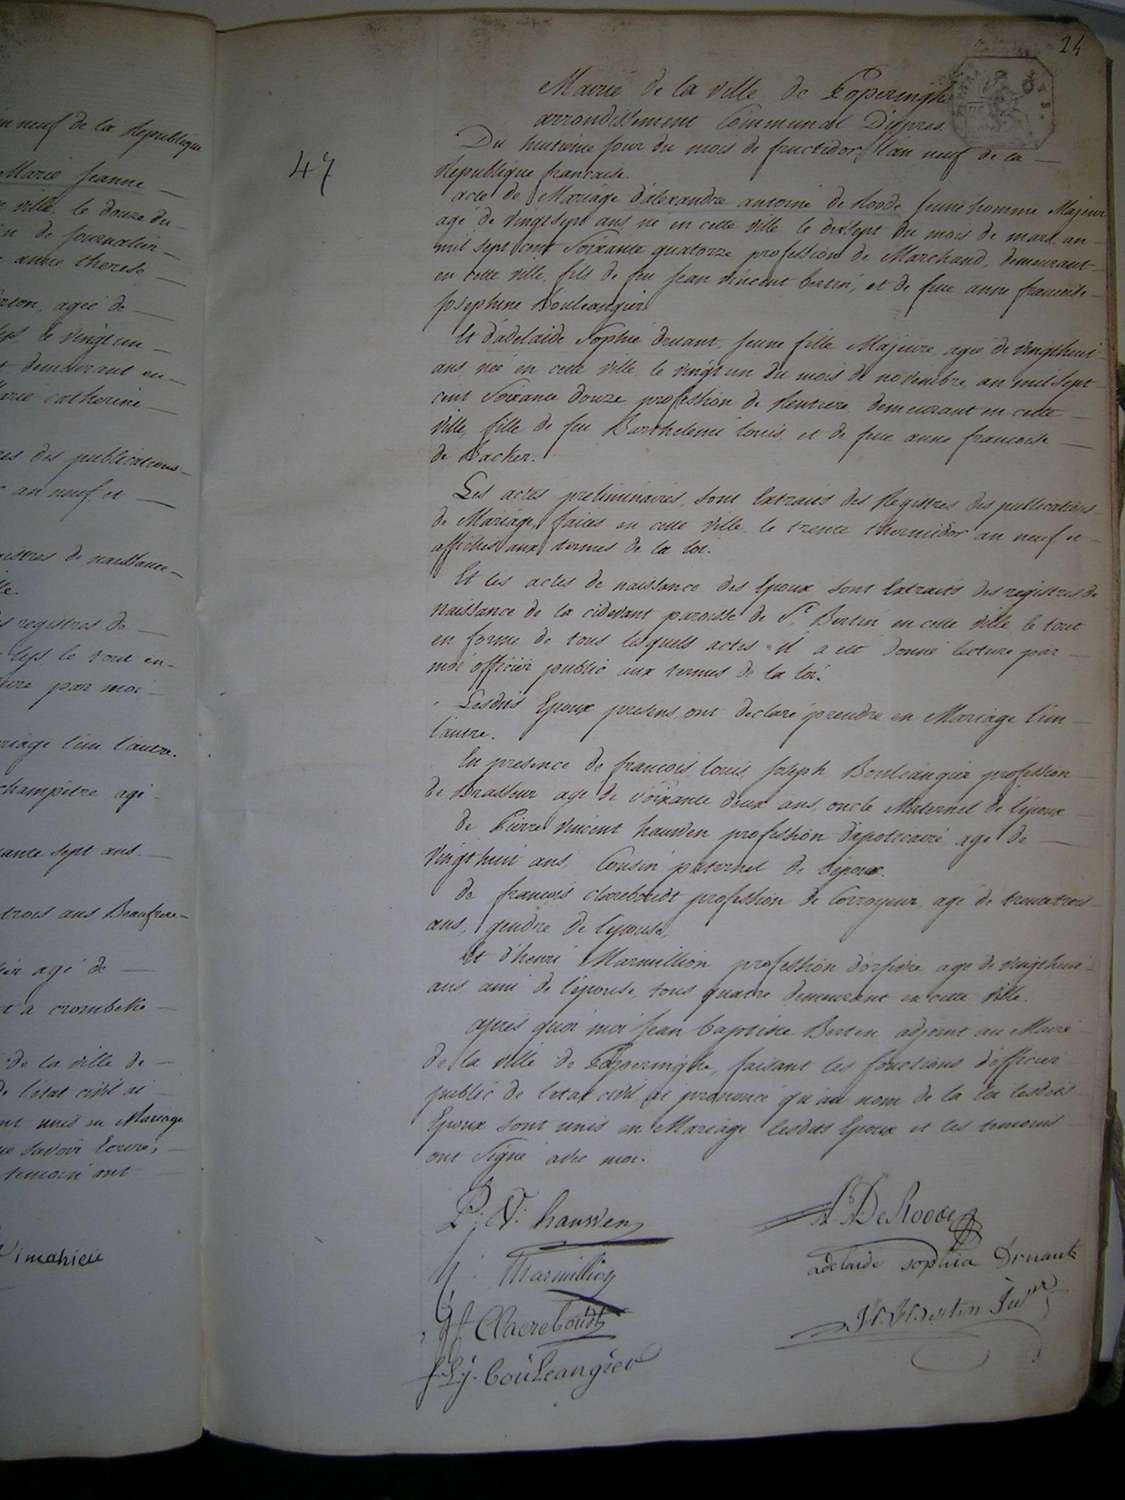 in neuf de la Republique
Marie Jeanne
ville, le douze du
de Journalier
anne therese
agée de
le vingt un
demeurant en
catherine
des publications
an neuf et
registres de naissance
registres de
le tout en
par moi
mariage l'un l'autre.
champêtre agé
sept ans
trois ans Beaufrere
agé de
a crombeke
de la ville de
de l'etat civil ai
unis en Mariage
savoir écrire,
temoin ont
Vimahieu
24
47
Mairie de la ville de Poperinghe
arrondissement Communal D'ypres.
Du huitieme jour du mois de fructidor, l'an neuf de la
Republique francaise.
acte de Mariage d'alexandre antoine de Roode jeune homme Majeur
agé de vingt sept ans né en cette ville le dixsept du mois de mars an
mil sept cent Soixante quatorze profession de Marchand, demeurant
en cette ville, fils de feu Jean vincent bertin, et de feue anne francoise
Josephine Bouleangier
Et d'adelaide Sophie druant, jeune fille Majeure, agée de vingt huit
ans née en cette ville le vingt un du mois de novembre, an mil Sept
cent Soixante douze, profession de Rentiere, demeurant en cette
ville, fille de feu Barthelemi louis, et de feue anne francoise
de Backer.
Les actes preliminaires, sont Extraits des Registres des publications
de Mariage, faites en cette ville, le trente thermidor an neuf et
affichés aux termes de la loi.
Et les actes de naissance des Epoux sont Extraits des registres de
Naissance de la cidevant paroisse de St. Bertin en cette ville le tout
en forme de tous lesquels actes il a été donné lecture par
moi officier public aux termes de la loi.
Lesdits Epoux presens, ont declaré prendre en Mariage l'un
l'autre.
En presence de francois louis Joseph Bouleangier profession
de Brasseur agé de soixante deux ans, oncle Maternel de l'epoux
de Pierre vincent hauwen profession d'apoticaire, agé de
vingt huit ans, Cousin paternel de l'epoux.
de francois claerebоudt profession de Corroyeur, agé de trente trois
ans, gendre de l'epouse,
Et d'henri Marmillion profession d'orfevre, agé de vingt huit
ans ami de l'epouse, tous quatre demeurant en cette ville.
après quoi moi Jean baptiste Berten adjoint au Maire
de la ville de Poperinghe, faisant les fonctions d'officier
public de l'etat civil ai prononcé qu'au nom de la loi lesdits
Epoux sont unis en Mariage lesdits Epoux et les temoins
ont Signé avec moi.
P: V: hauwen
A. A De Roode
H: Marmillion
adelaide sophia Druant
f Claereboudt
f: L: j: bouleangier